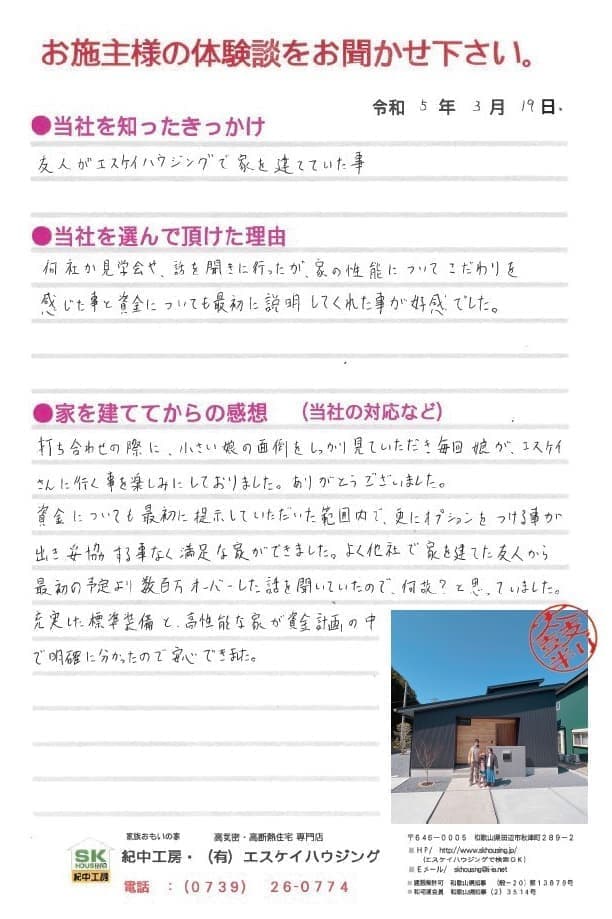 お施主様の体験談をお聞かせ下さい。
令和 5 年 3 月 19 日.
●当社を知ったきっかけ
友人がエスケイハウジングで家を建てていた事
●当社を選んで頂けた理由
何社か見学会や、話を聞きに行ったが、家の性能についてこだわりを
感じた事と資金についても最初に説明してくれた事が好感でした。
●家を建ててからの感想 （当社の対応など）
打ち合わせの際に、小さい娘の面倒をしっかり見ていただき毎回娘が、エスケイ
さんに行く事を楽しみにしておりました。ありがとうございました。
資金についても最初に提示していただいた範囲内で、更にオプションをつける事が
出き妥協する事なく満足な家ができました。よく他社で家を建てた友人から
最初の予定より数百万オーバーした話を聞いていたので、何故？と思っていました。
充実した標準装備と、高性能な家が資金計画の中
で明確に分かったので安心できました。
家族おもいの家 高気密・高断熱住宅 専門店
SK
HOUSING
紀中工房
紀中工房・（有）エスケイハウジング
電話 ：（0739） 26-0774
〒646-0005 和歌山県田辺市秋津町289-2
■HP/ http://www.skhousng.jp/
（エスケイハウジングで検索OK）
■Eメール/ skhousng@s-ia.net
■建設業許可 和歌山県知事 （般-20）第13879号
■和宅建免許 和歌山県知事（2）3514号